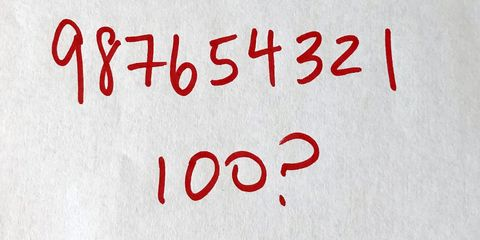 987654321
100?